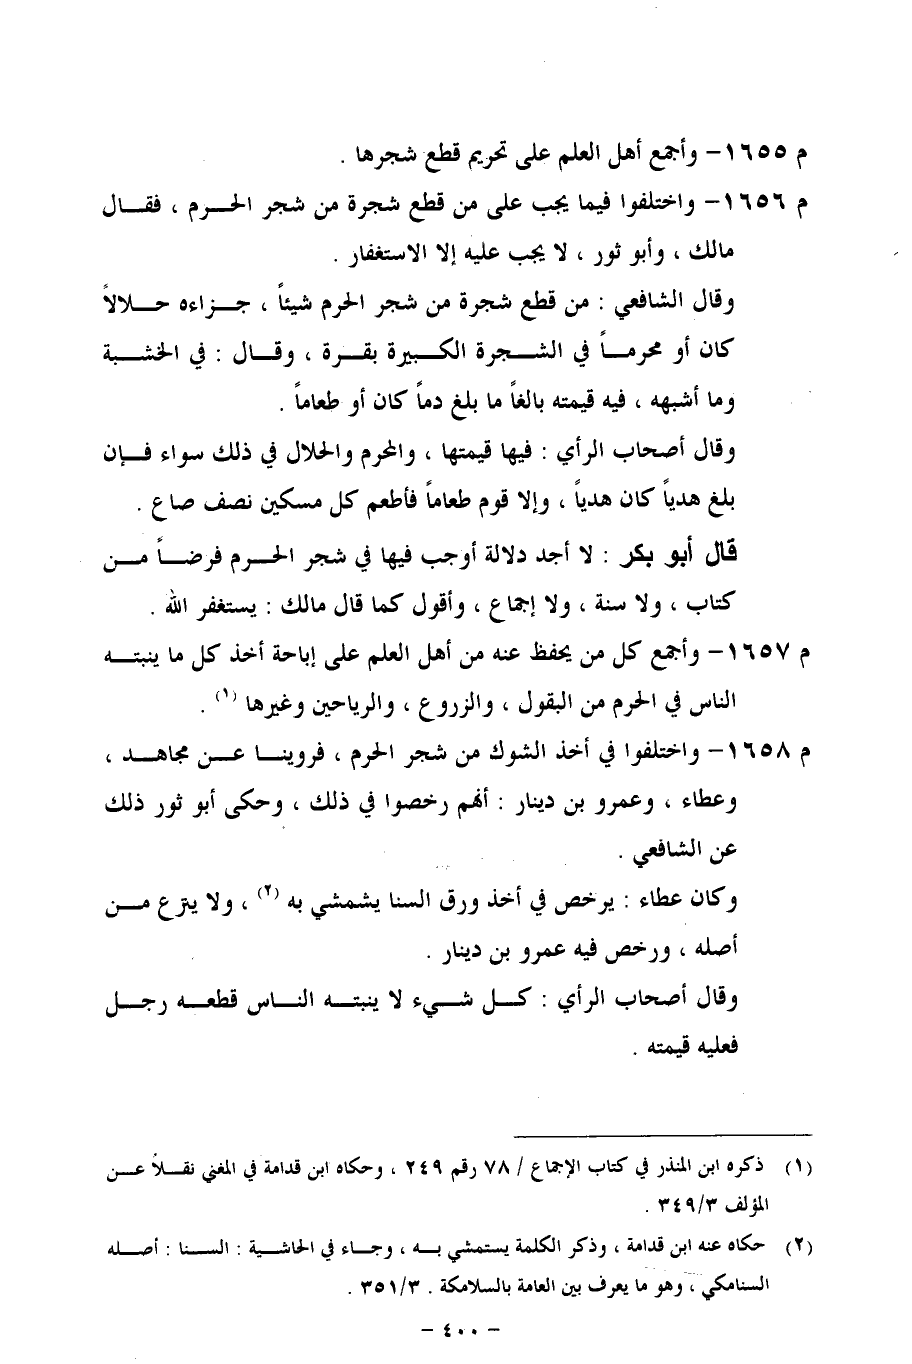 م ١٦٥٥- وأجمع أهل العلم على تحريم قطع شجرها .
م ١٦٥٦- واختلفوا فيما يجب على من قطع شجرة من شجر الحرم ، فقال
مالك ، وأبو ثور ، لا يجب عليه إلا الاستغفار .
وقال الشافعي : من قطع شجرة من شجر الحرم شيئاً ، جزاءه حلالاً
كان أو محرماً في الشجرة الكبيرة بقرة ، وقال : في الخشبة
وما أشبهه ، فيه قيمته بالغاً ما بلغ دماً كان أو طعاماً .
وقال أصحاب الرأي : فيها قيمتها ، والمحرم والحلال في ذلك سواء فإن
بلغ هدياً كان هدياً ، وإلا قوم طعاماً فأطعم كل مسكين نصف صاع .
قال أبو بكر : لا أجد دلالة أوجب فيها في شجر الحرم فرضاً من
كتاب ، ولا سنة ، ولا إجماع ، وأقول كما قال مالك : يستغفر الله .
م ١٦٥٧- وأجمع كل من يحفظ عنه من أهل العلم على إباحة أخذ كل ما ينبته
الناس في الحرم من البقول ، والزروع ، والرياحين وغيرها (١) .
م ١٦٥٨- واختلفوا في أخذ الشوك من شجر الحرم ، فروينا عن مجاهد ،
وعطاء ، وعمرو بن دينار : أنهم رخصوا في ذلك ، وحكى أبو ثور ذلك
عن الشافعي .
وكان عطاء : يرخص في أخذ ورق السنا يشمشي به (٢) ، ولا ينزع من
أصله ، ورخص فيه عمرو بن دينار .
وقال أصحاب الرأي : كل شيء لا ينبته الناس قطعه رجل
فعليه قيمته .
(١) ذكره ابن المنذر في كتاب الإجماع / ٧٨ رقم ٢٤٩ ، وحكاه ابن قدامة في المغني نقلاً عن
المؤلف ٣٤٩/٣ .
(٢) حكاه عنه ابن قدامة ، وذكر الكلمة يستمشي به ، وجاء في الحاشية : السنا : أصله
السنامكي ، وهو ما يعرف بين العامة بالسلامكة . ٣٥١/٣ .
- ٤٠٠ -